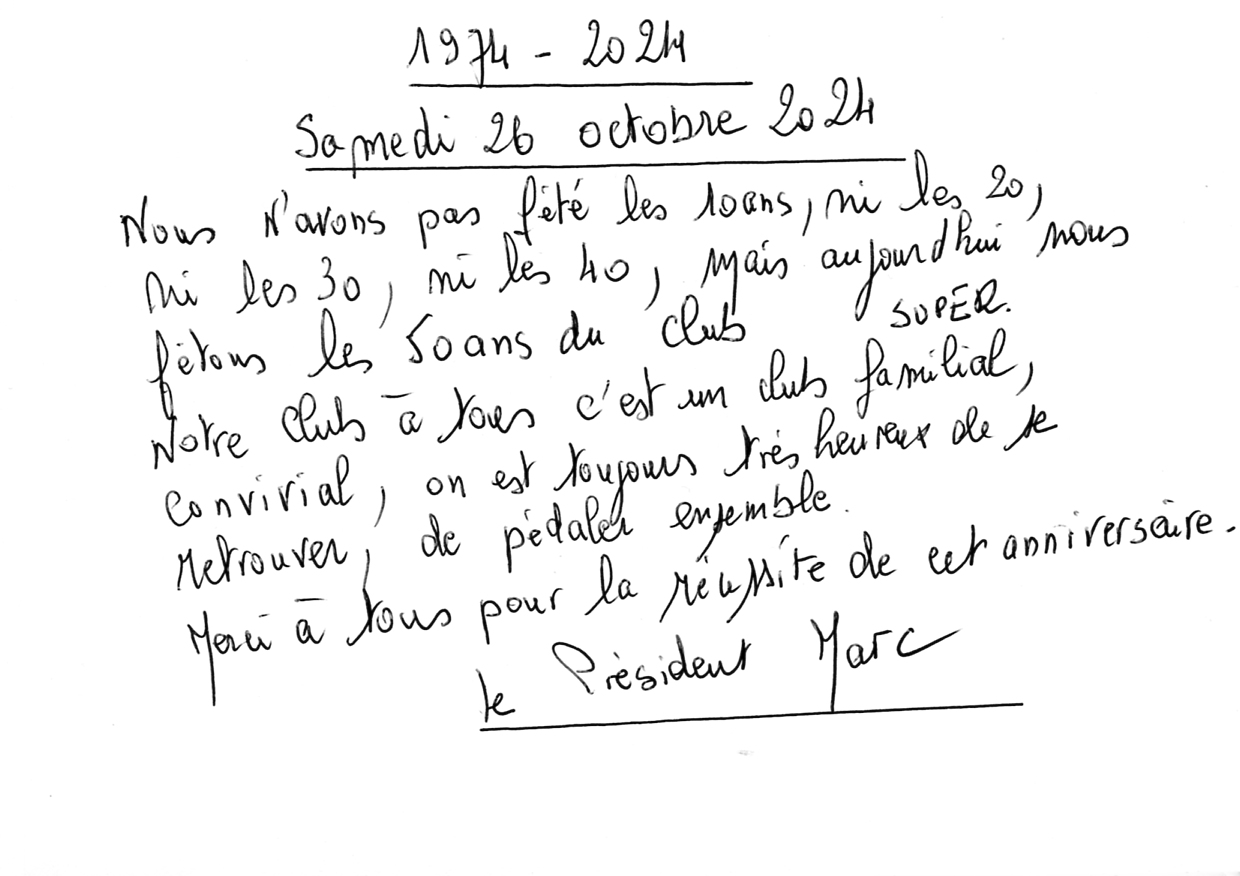 1974 - 2024
Samedi 26 octobre 2024
Nous N'avons pas fêté les 10ans, ni les 20,
Ni les 30, ni les 40, mais aujourd'hui nous
fêtons les 50ans du club SUPER.
Notre Club à tous c'est un club familial,
convivial, on est toujours très heureux de se
retrouver, de pédaler ensemble.
Merci à tous pour la réussite de cet anniversaire.
le Président Marc